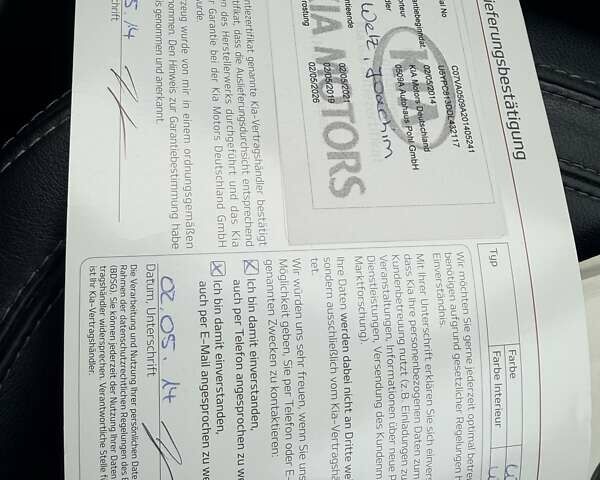 ieferungsbestätigung
ial No
C07VA0509A201405241
U5YPC813DDL432117
antiebeginndat.
02/05/2014
orteur
KIA Motors Deutschland
ndler
0509A Autohaus Pohl GmbH
Welz, Joachim
KIA MOTORS
ntieende
02/05/2021
02/05/2019
rostung
02/05/2026
ntiezertifikat genannte Kia-Vertragshändler bestätigt
tifikat, dass die Auslieferungsdurchsicht entsprechend
en des Herstellerwerks durchgeführt und das Kia
r Garantie bei der Kia Motors Deutschland GmbH
urde.
rzeug wurde von mir in einem ordnungsgemäßen
nommen. Den Hinweis zur Garantiebestimmung habe
is genommen und anerkannt.
05.14
schrift
Typ
Farbe
Farbe Interieur
Wir möchten Sie gerne jederzeit optimal betreu
benötigen aufgrund gesetzlicher Regelungen h
Einverständnis.
Mit Ihrer Unterschrift erklären Sie sich einvers
dass Kia Ihre personenbezogenen Daten zum
Kundenbetreuung nutzt (z. B. Einladungen zu
Veranstaltungen, Informationen über neue P
Dienstleistungen, Versendung des Kundenm
Marktforschung).
Ihre Daten werden dabei nicht an Dritte we
sondern ausschließlich vom Kia-Vertragshä
tet.
Wir würden uns sehr freuen, wenn Sie uns
Möglichkeit geben, Sie per Telefon oder E-
genannten Zwecken zu kontaktieren:
Ich bin damit einverstanden,
auch per Telefon angesprochen zu we
Ich bin damit einverstanden,
auch per E-Mail angesprochen zu we
02.05.14
Datum, Unterschrift
Die Verarbeitung und Nutzung Ihrer persönlichen Date
Rahmen der datenschutzrechtlichen Regelungen des B
(BDSG). Sie können jederzeit der Nutzung Ihrer Daten
tragshändler widersprechen. Verantwortliche Stelle f
ist Ihr Kia-Vertragshändler.